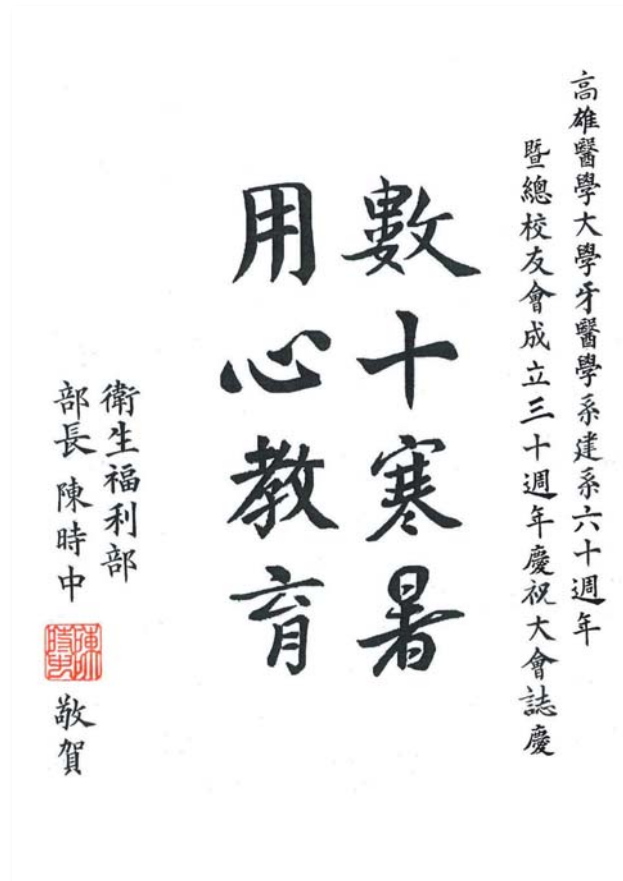 高雄醫學大學牙醫學系建系六十週年
暨總校友會成立三十週年慶祝大會誌慶
數十寒暑
用心教育
衛生福利部
部長 陳時中
陳時中
敬賀